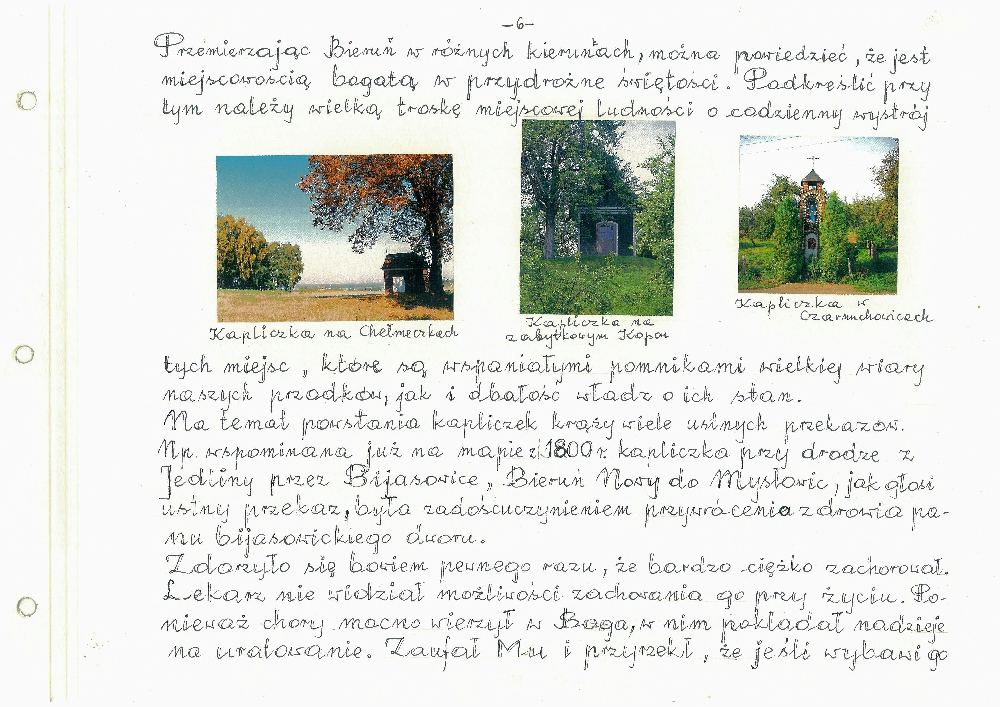 -6-
Przemierzając Bieruń w różnych kierunkach, można powiedzieć, że jest
miejscowością bogatą w przydrożne świętości. Podkreślić przy
tym należy wielką troskę miejscowej ludności o codzienny wystrój
Kapliczka na Chełmeczkach
Kapliczka na
zabytkowym Kopcu
Kapliczka w
Czarnuchowicach
tych miejsc, które są wspaniałymi pomnikami wielkiej wiary
naszych przodków, jak i dbałość władz o ich stan.
Na temat powstania kapliczek krąży wiele ustnych przekazów.
Np. wspominana już na mapie z 1800 r. kapliczka przy drodze z
Jedliny przez Bijasowice, Bieruń Nowy do Mysłowic, jak głosi
ustny przekaz, była zadośćuczynieniem przywrócenia zdrowia pa-
nu bijasowickiego dworu.
Zdarzyło się bowiem pewnego razu, że bardzo ciężko zachorował.
Lekarz nie widział możliwości zachowania go przy życiu. Po-
nieważ chory mocno wierzył w Boga, w nim pokładał nadzieje
na uratowanie. Zaufał Mu i przyrzekł, że jeśli wybawi go